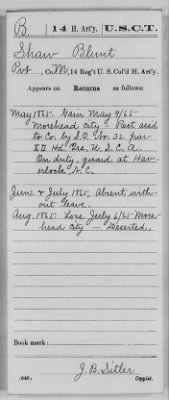 B. 14 H. Art'y. U.S.C.T.
Shaw Blunt
Pvt, Co. M, 14 Reg't U. S. Col'd H. Art'y.
Appears on Returns as follows:
May 1865. Gain May 9/65
Morehead City – Rect assd
to Co. by S.O. No. 32 par
XII Hd. Qrs. U.S.C.A.
On duty, guard at Hav-
elock N.C.
June & July 1865, Absent with-
out leave.
Aug. 1865. Loss July 6/65 More-
head city – Deserted.
Book mark:
(646)
J. B. Sitler
Copyist.